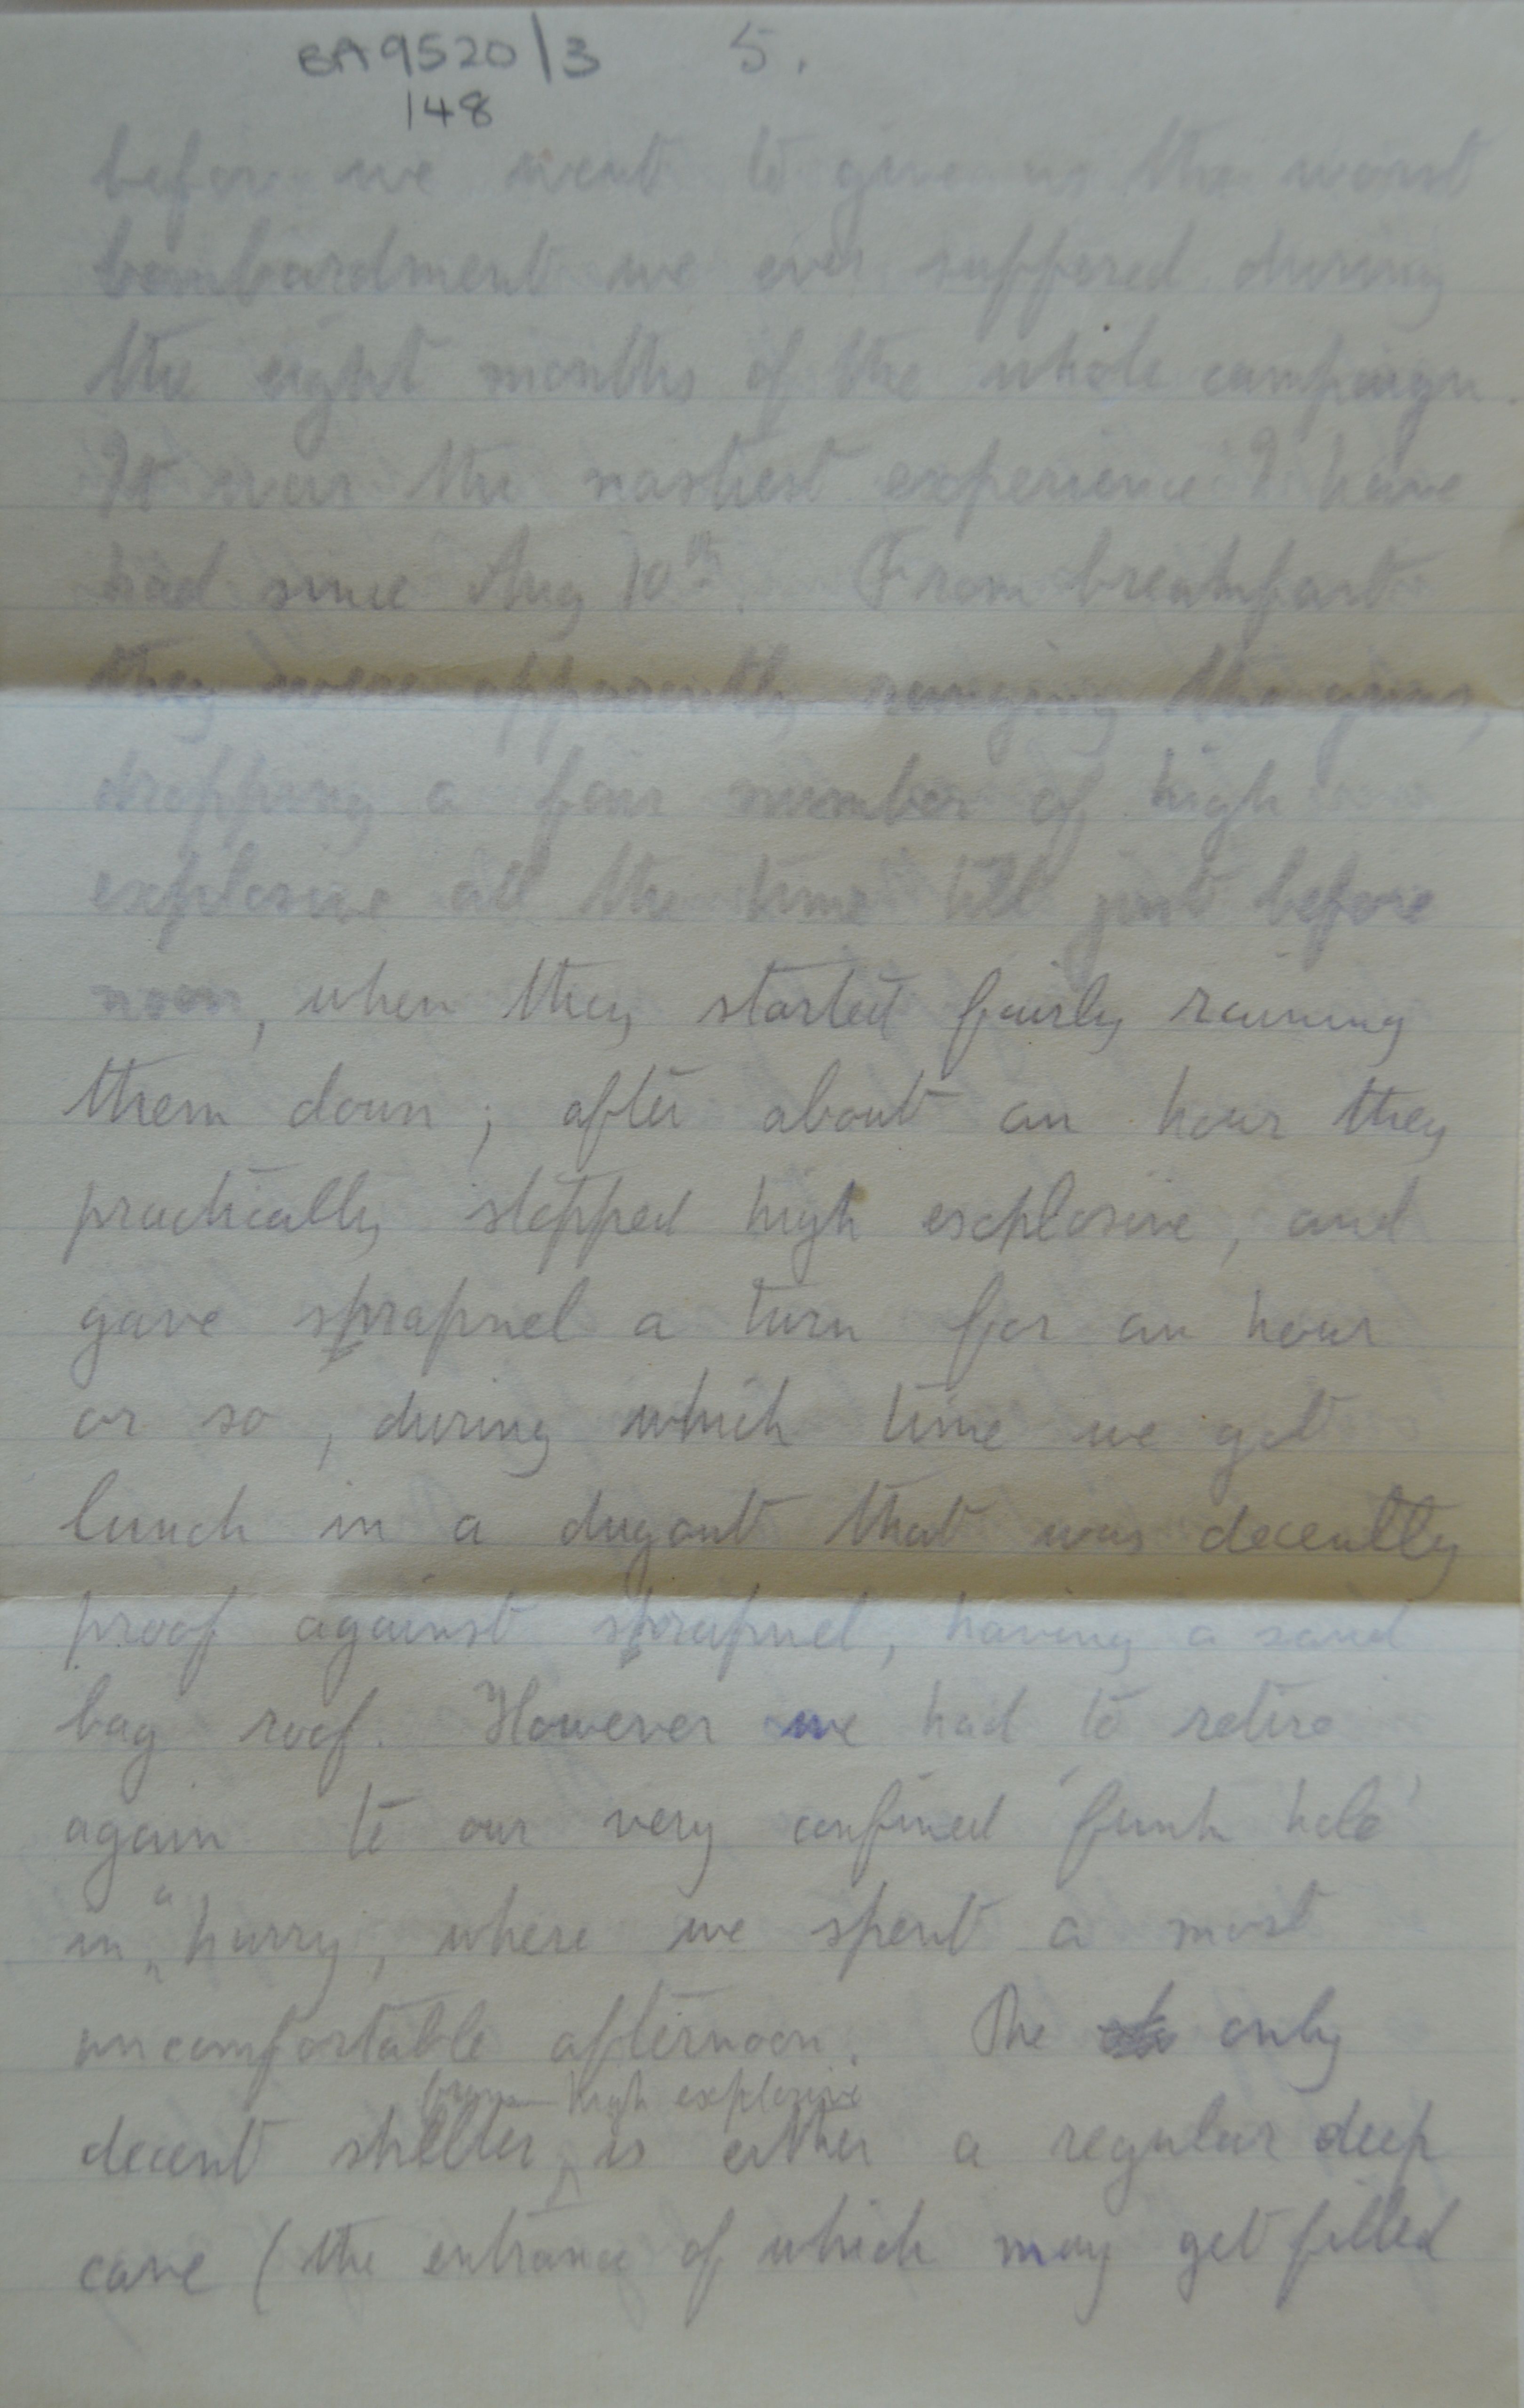 BA9520/3 5.
148
before we went to give us the worst
bombardment we ever suffered during
the eight months of the whole campaign.
It was the nastiest experience I have
had since Aug 10th. From breakfast
they were apparently ranging the guns,
dropping a fair number of high
explosive all the time till just before
noon, when they started fairly raining
them down; after about an hour they
practically stopped high explosive, and
gave shrapnel a turn for an hour
or so, during which time we got
lunch in a dugout that was decently
proof against shrapnel, having a sand
bag roof. However we had to retire
again to our very confined 'funk hole'
in a hurry, where we spent a most
uncomfortable afternoon. The only
from high explosive
decent shelter is either a regular deep
cave (the entrance of which may get filled